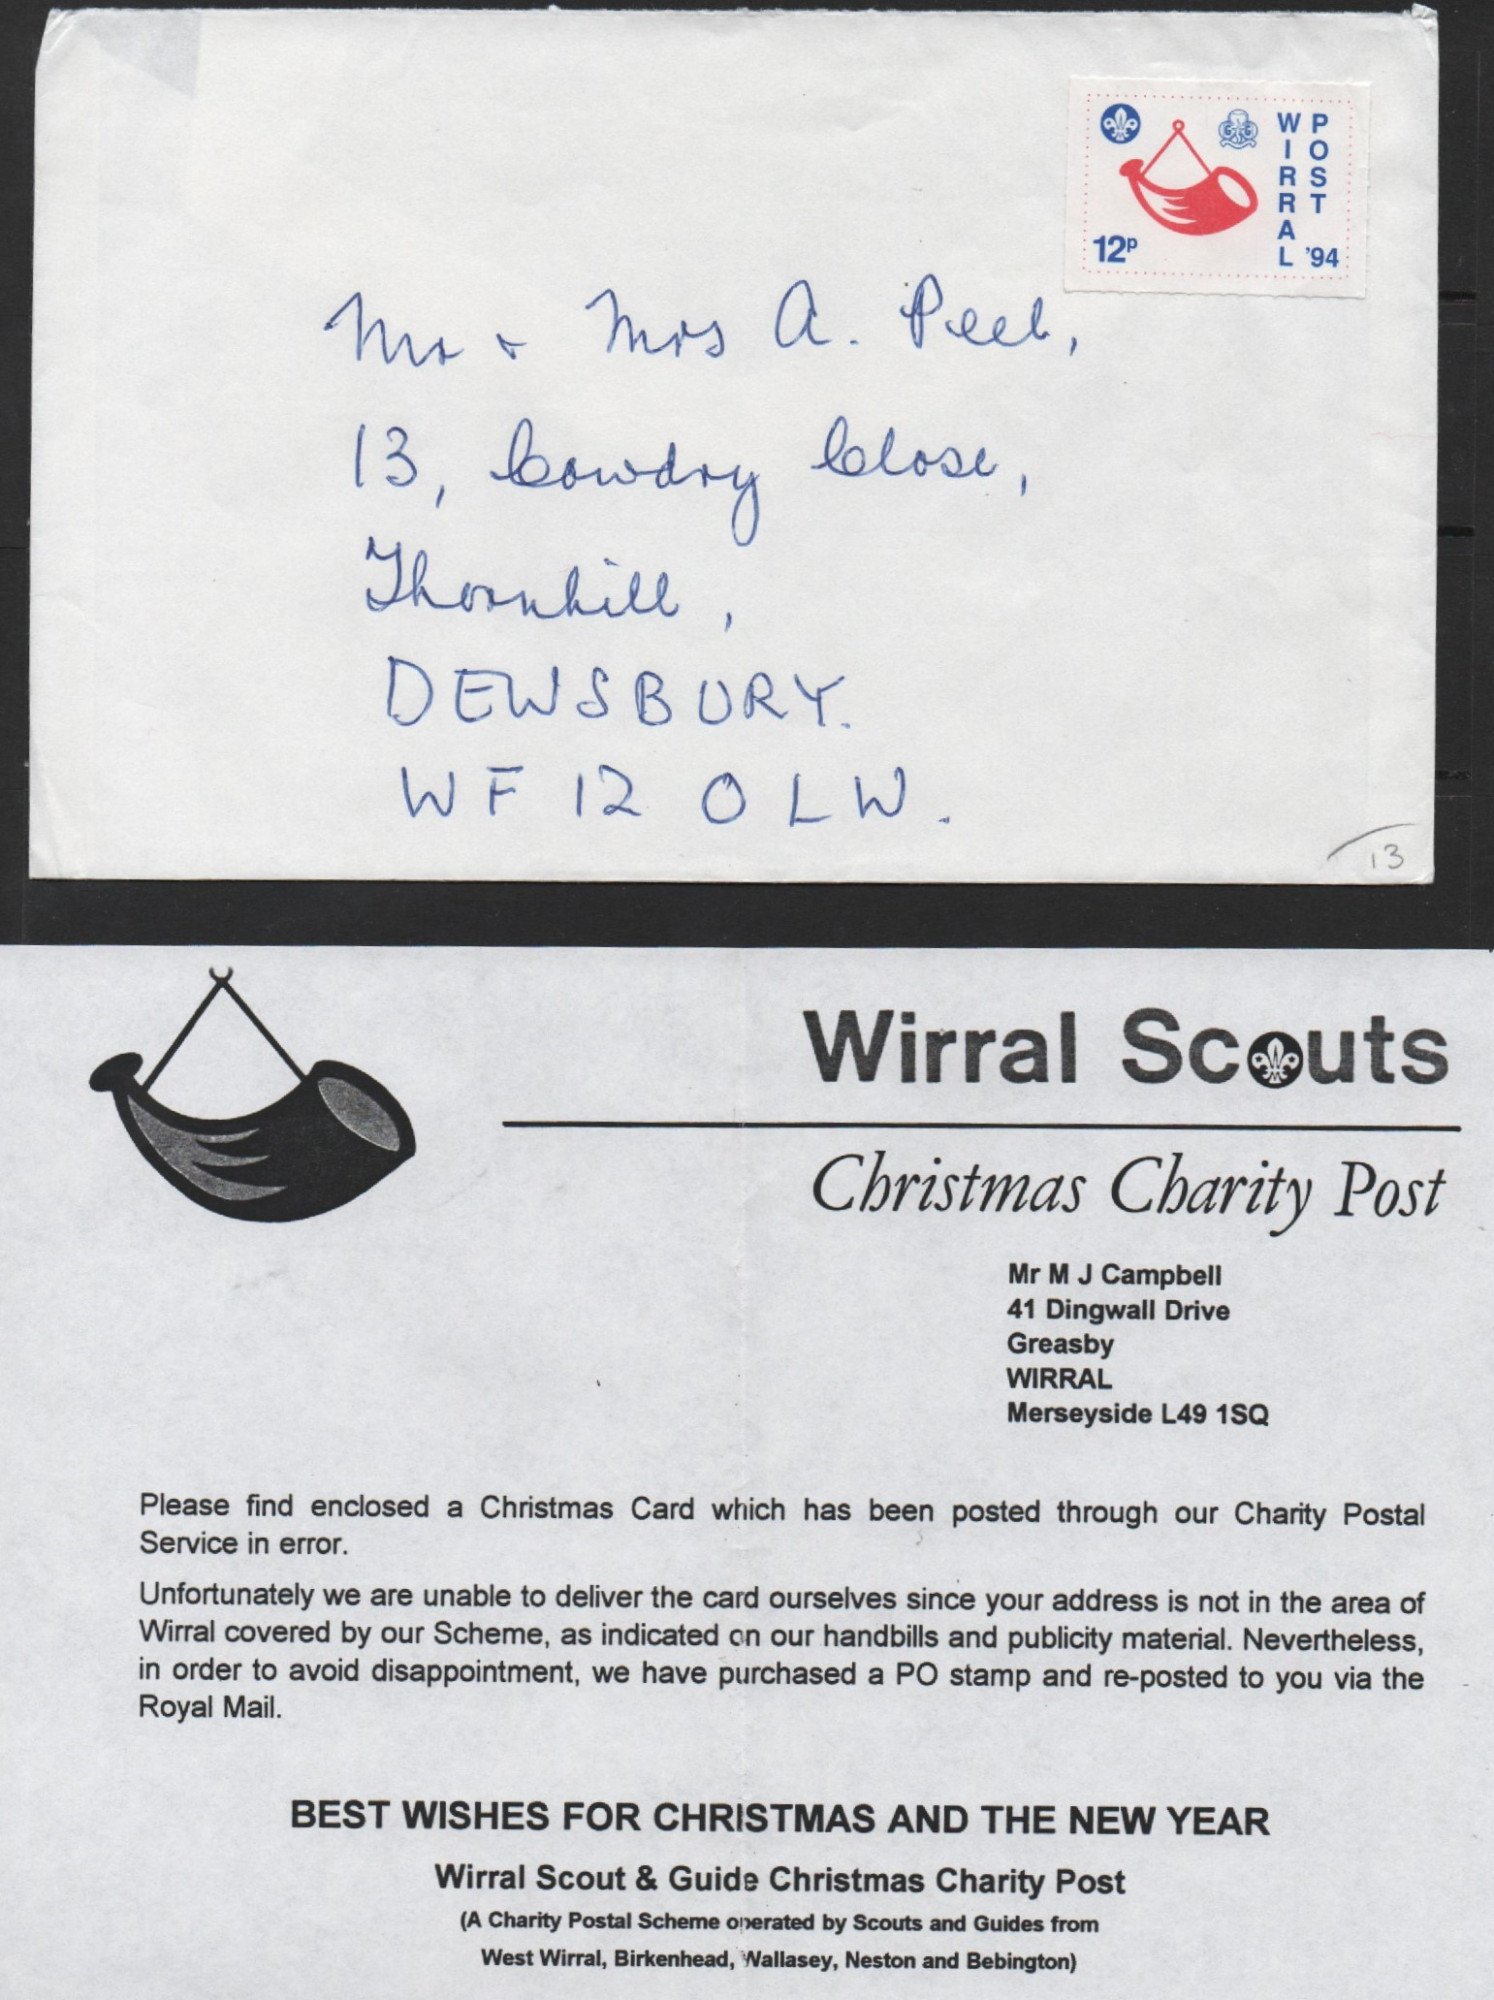 WIRRAL POST '94
12P
Mr + Mrs A. Peel,
13, Cowdry Close,
Thornhill,
DEWSBURY.
WF12 OLW.
13
Wirral Scouts
Christmas Charity Post
Mr M J Campbell
41 Dingwall Drive
Greasby
WIRRAL
Merseyside L49 1SQ
Please find enclosed a Christmas Card which has been posted through our Charity Postal
Service in error.
Unfortunately we are unable to deliver the card ourselves since your address is not in the area of
Wirral covered by our Scheme, as indicated on our handbills and publicity material. Nevertheless,
in order to avoid disappointment, we have purchased a PO stamp and re-posted to you via the
Royal Mail.
BEST WISHES FOR CHRISTMAS AND THE NEW YEAR
Wirral Scout & Guide Christmas Charity Post
(A Charity Postal Scheme operated by Scouts and Guides from
West Wirral, Birkenhead, Wallasey, Neston and Bebington)